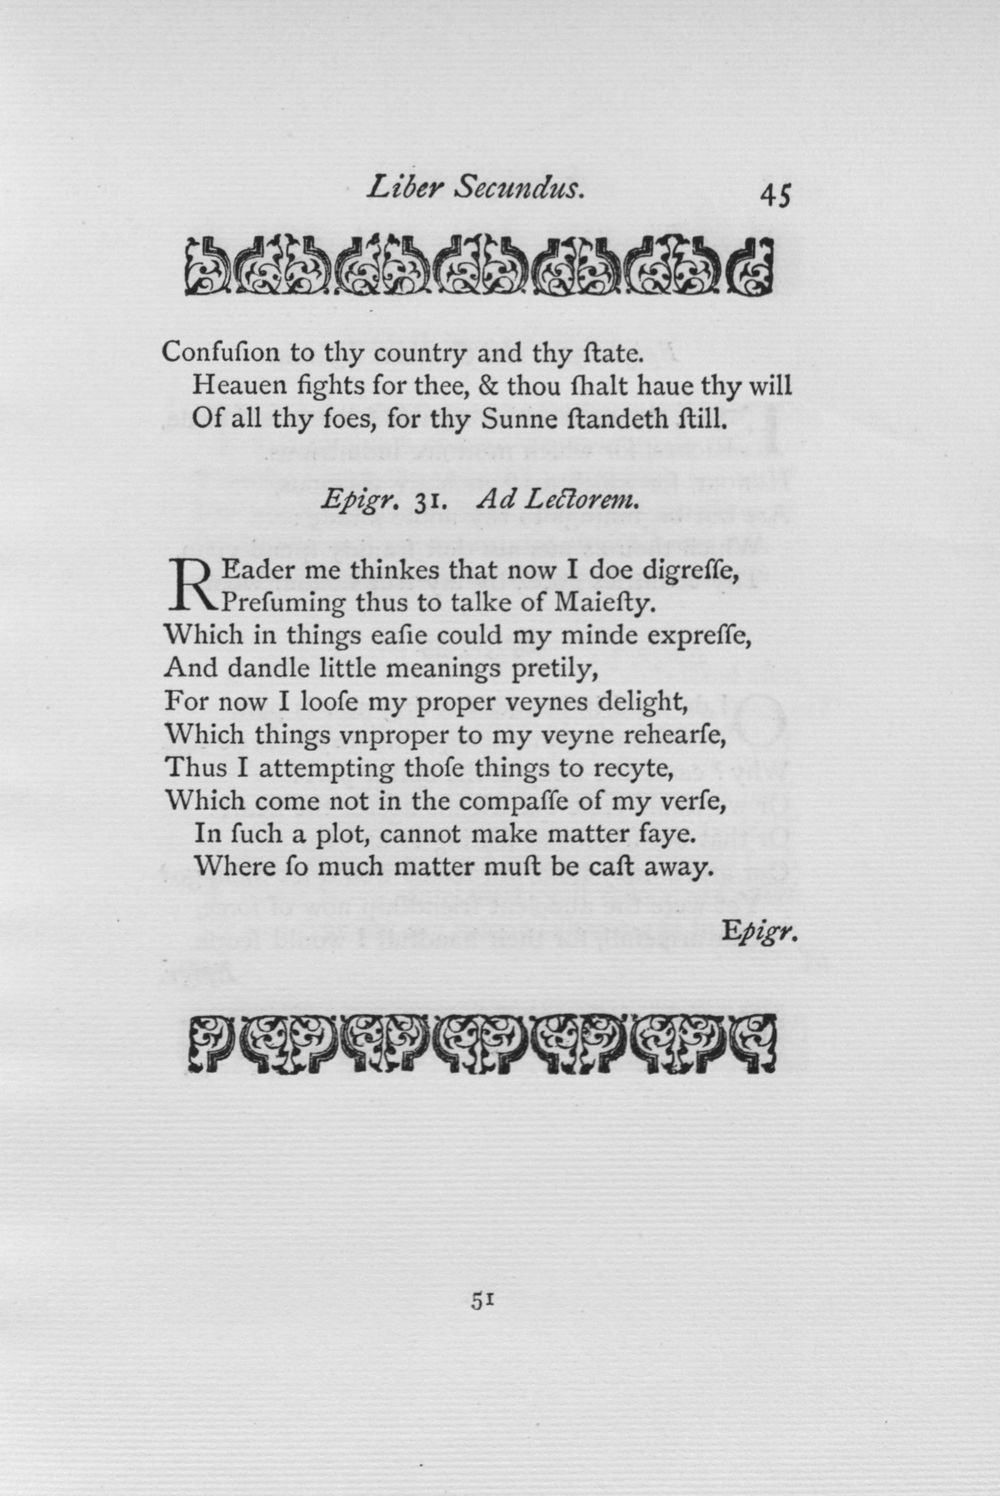 Liber Secundus. 45
Confuſion to thy country and thy ſtate.
Heauen fights for thee, & thou ſhalt haue thy will
Of all thy foes, for thy Sunne ſtandeth ſtill.
Epigr. 31. Ad Lectorem.
REader me thinkes that now I doe digreſſe,
Preſuming thus to talke of Maieſty.
Which in things eaſie could my minde expreſſe,
And dandle little meanings pretily,
For now I looſe my proper veynes delight,
Which things vnproper to my veyne rehearſe,
Thus I attempting thoſe things to recyte,
Which come not in the compaſſe of my verſe,
In ſuch a plot, cannot make matter ſaye.
Where ſo much matter muſt be caſt away.
Epigr.
51